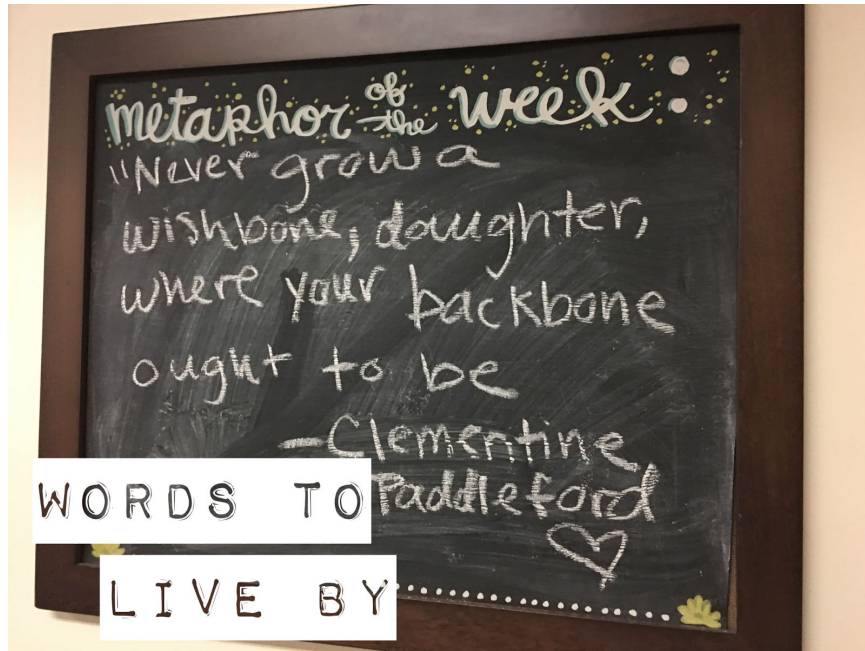 metaphor of the week:
"Never grow a
wishbone, daughter,
where your backbone
ought to be
-Clementine
Paddleford
WORDS TO
LIVE BY